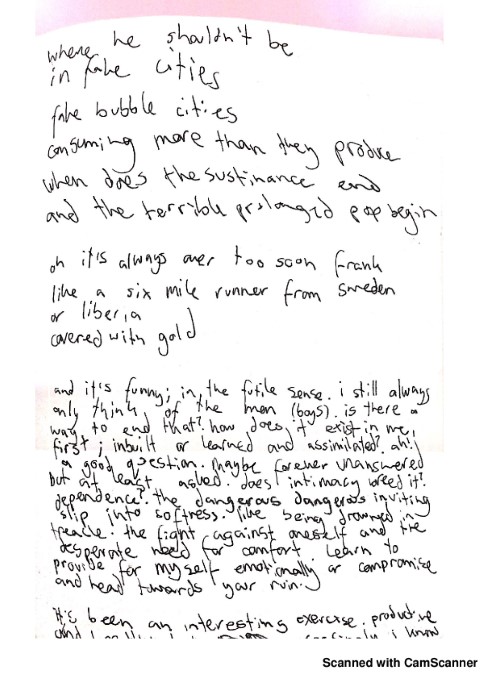 where he shouldn't be
in fake cities
fake bubble cities
consuming more than they produce
when does the sustinance end
and the terrible prolonged pop begin
oh it's always over too soon frank
like a six mile runner from sweden
or liberia
covered with gold
and it's funny; in the futile sense. i still always
only think of the men (boys). is there a
way to end that? how does it exist in me,
first; inbuilt or learned and assimilated? ah!
a good question. maybe forever unanswered
but at least asked. does intimacy breed it?
dependence? the dangerous dangerous inviting
slip into softness. like being drowned in
treacle. the fight against oneself and the
desperate need for comfort. learn to
provide for myself emotionally or compromise
and head towards your ruin.
it's been an interesting exercise. productive
and i know
Scanned with CamScanner